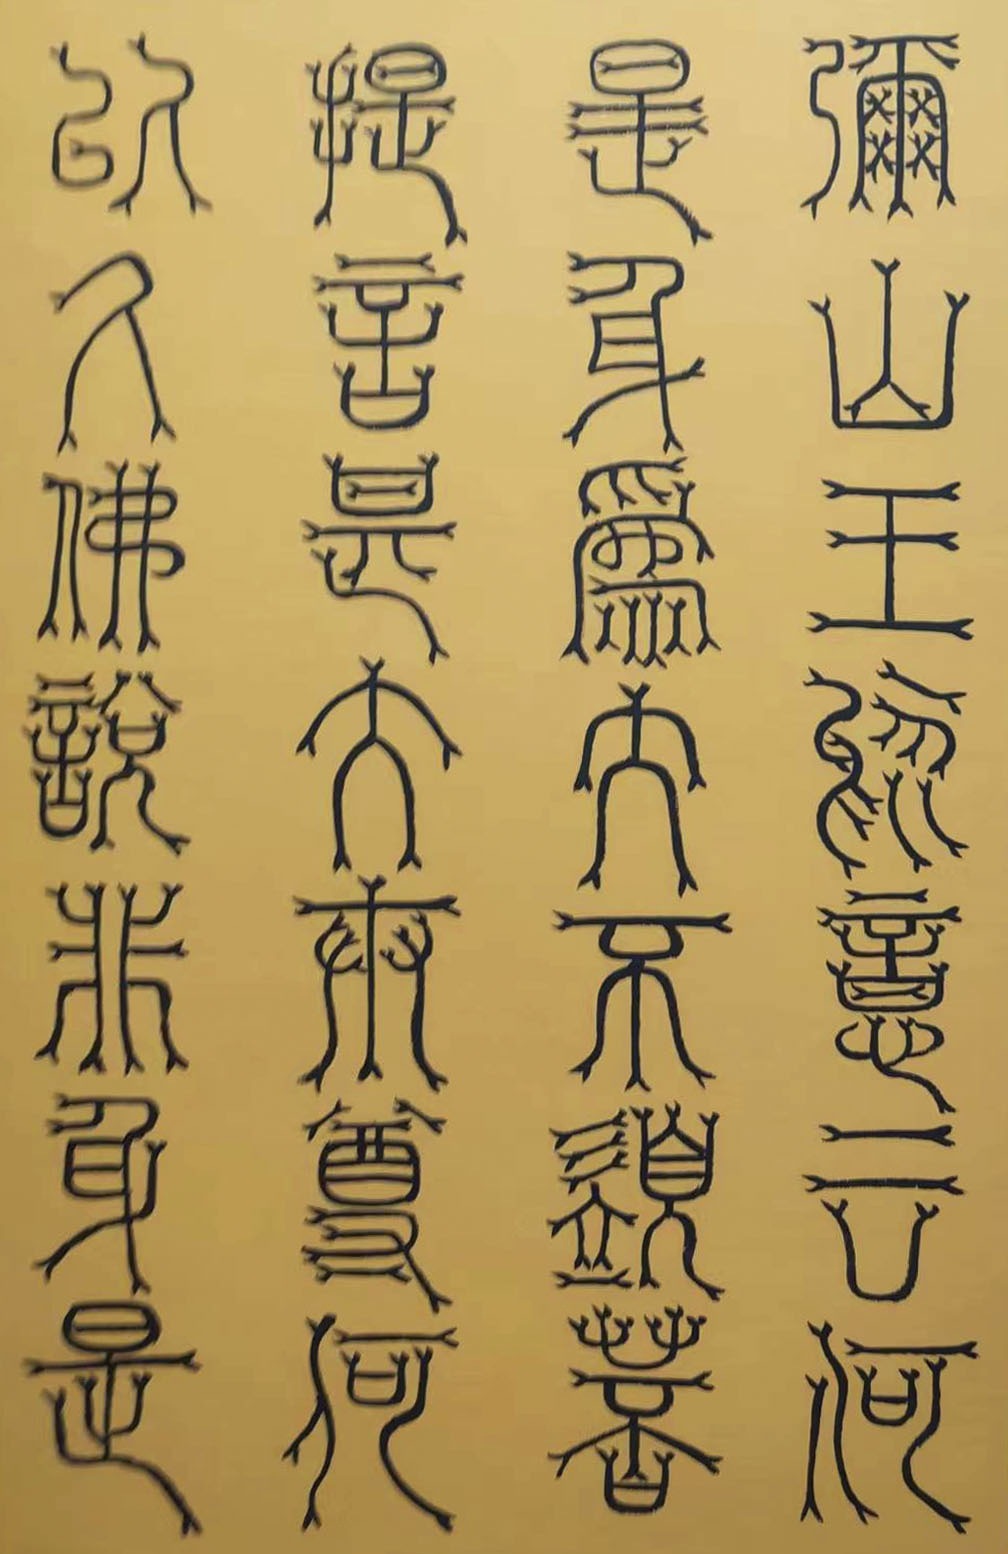 彌山王於意云何
是身爲大不須菩
提言甚大尊何
以佛說非身是